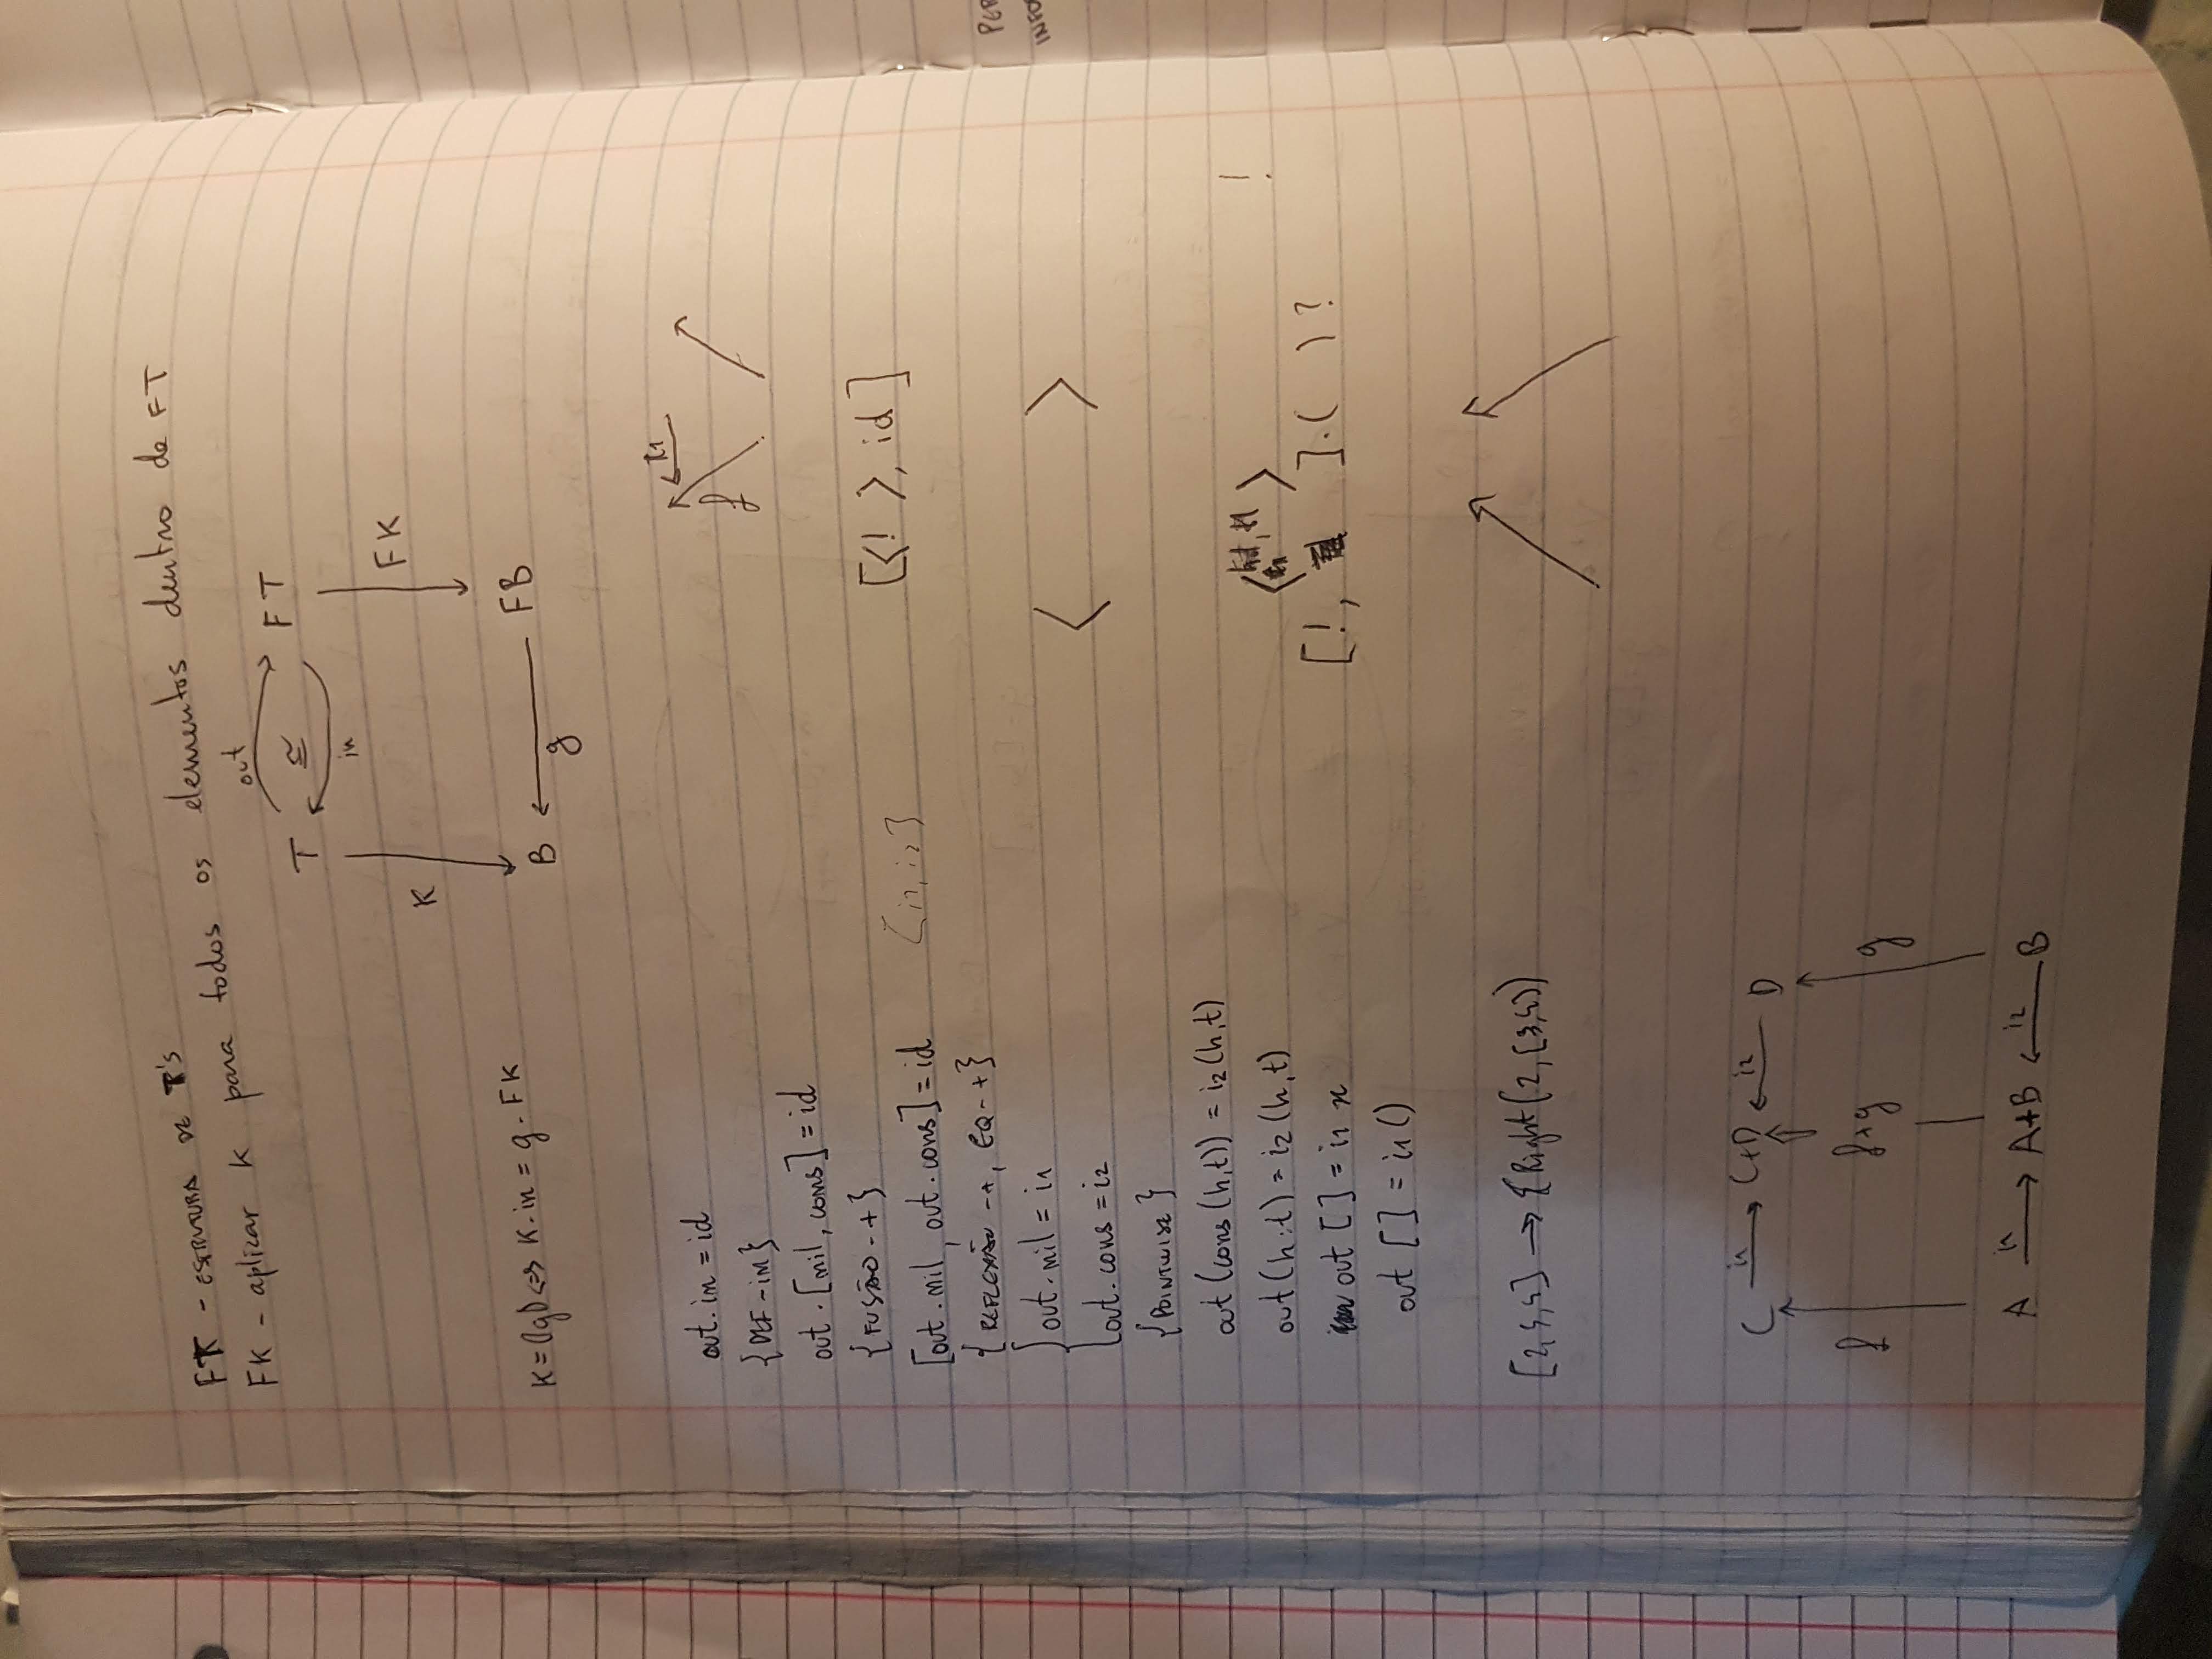 FT - ESTRUTURA DE T's
FK - aplicar K para todos os elementos dentro de FT
out
T ≅ FT
in
K FK
K = (|g|) <=> K . in = g . FK
B FB
g
out . in = id
{DEF - in}
out . [nil, cons] = id
{FUSÃO - +}
[out . nil, out . cons] = id [i1, i2]
{REFLEXÃO - +, EQ - +}
out . nil = i1
out . cons = i2
{POINTWISE}
out (cons (h,t)) = i2 (h,t)
out (h:t) = i2 (h,t)
out [] = i1 x
out [] = i1 ()
π1
f
[<! >, id]
< >
< > !
[!, ] . ( ) ?
→ Right (2, [3,4])
C i1 C+D i2 D
f f+g g
A i1 A+B i2 B
PER
INFO